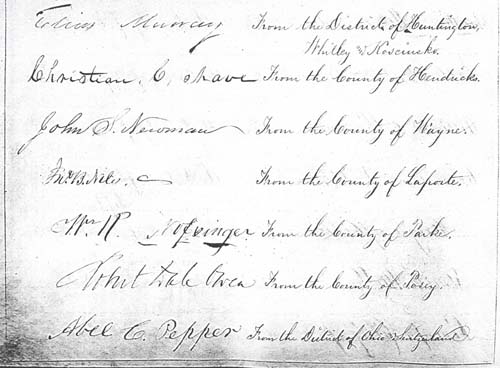 Elias Murray From the District of Huntington,
Whitley & Kosciusko.
Christian C. Nave From the County of Hendricks.
John S. Newman From the County of Wayne.
Jno. B. Niles. From the County of Laporte.
Wm R. Nofsinger From the County of Parke.
Robert Dale Owen From the County of Posey.
Abel C. Pepper From the District of Ohio & Switzerland